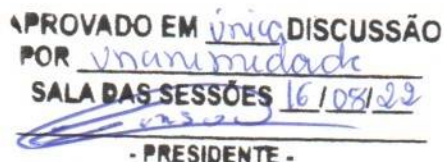 APROVADO EM única DISCUSSÃO
POR unanimidade
SALA DAS SESSÕES 16/08/22
- PRESIDENTE -